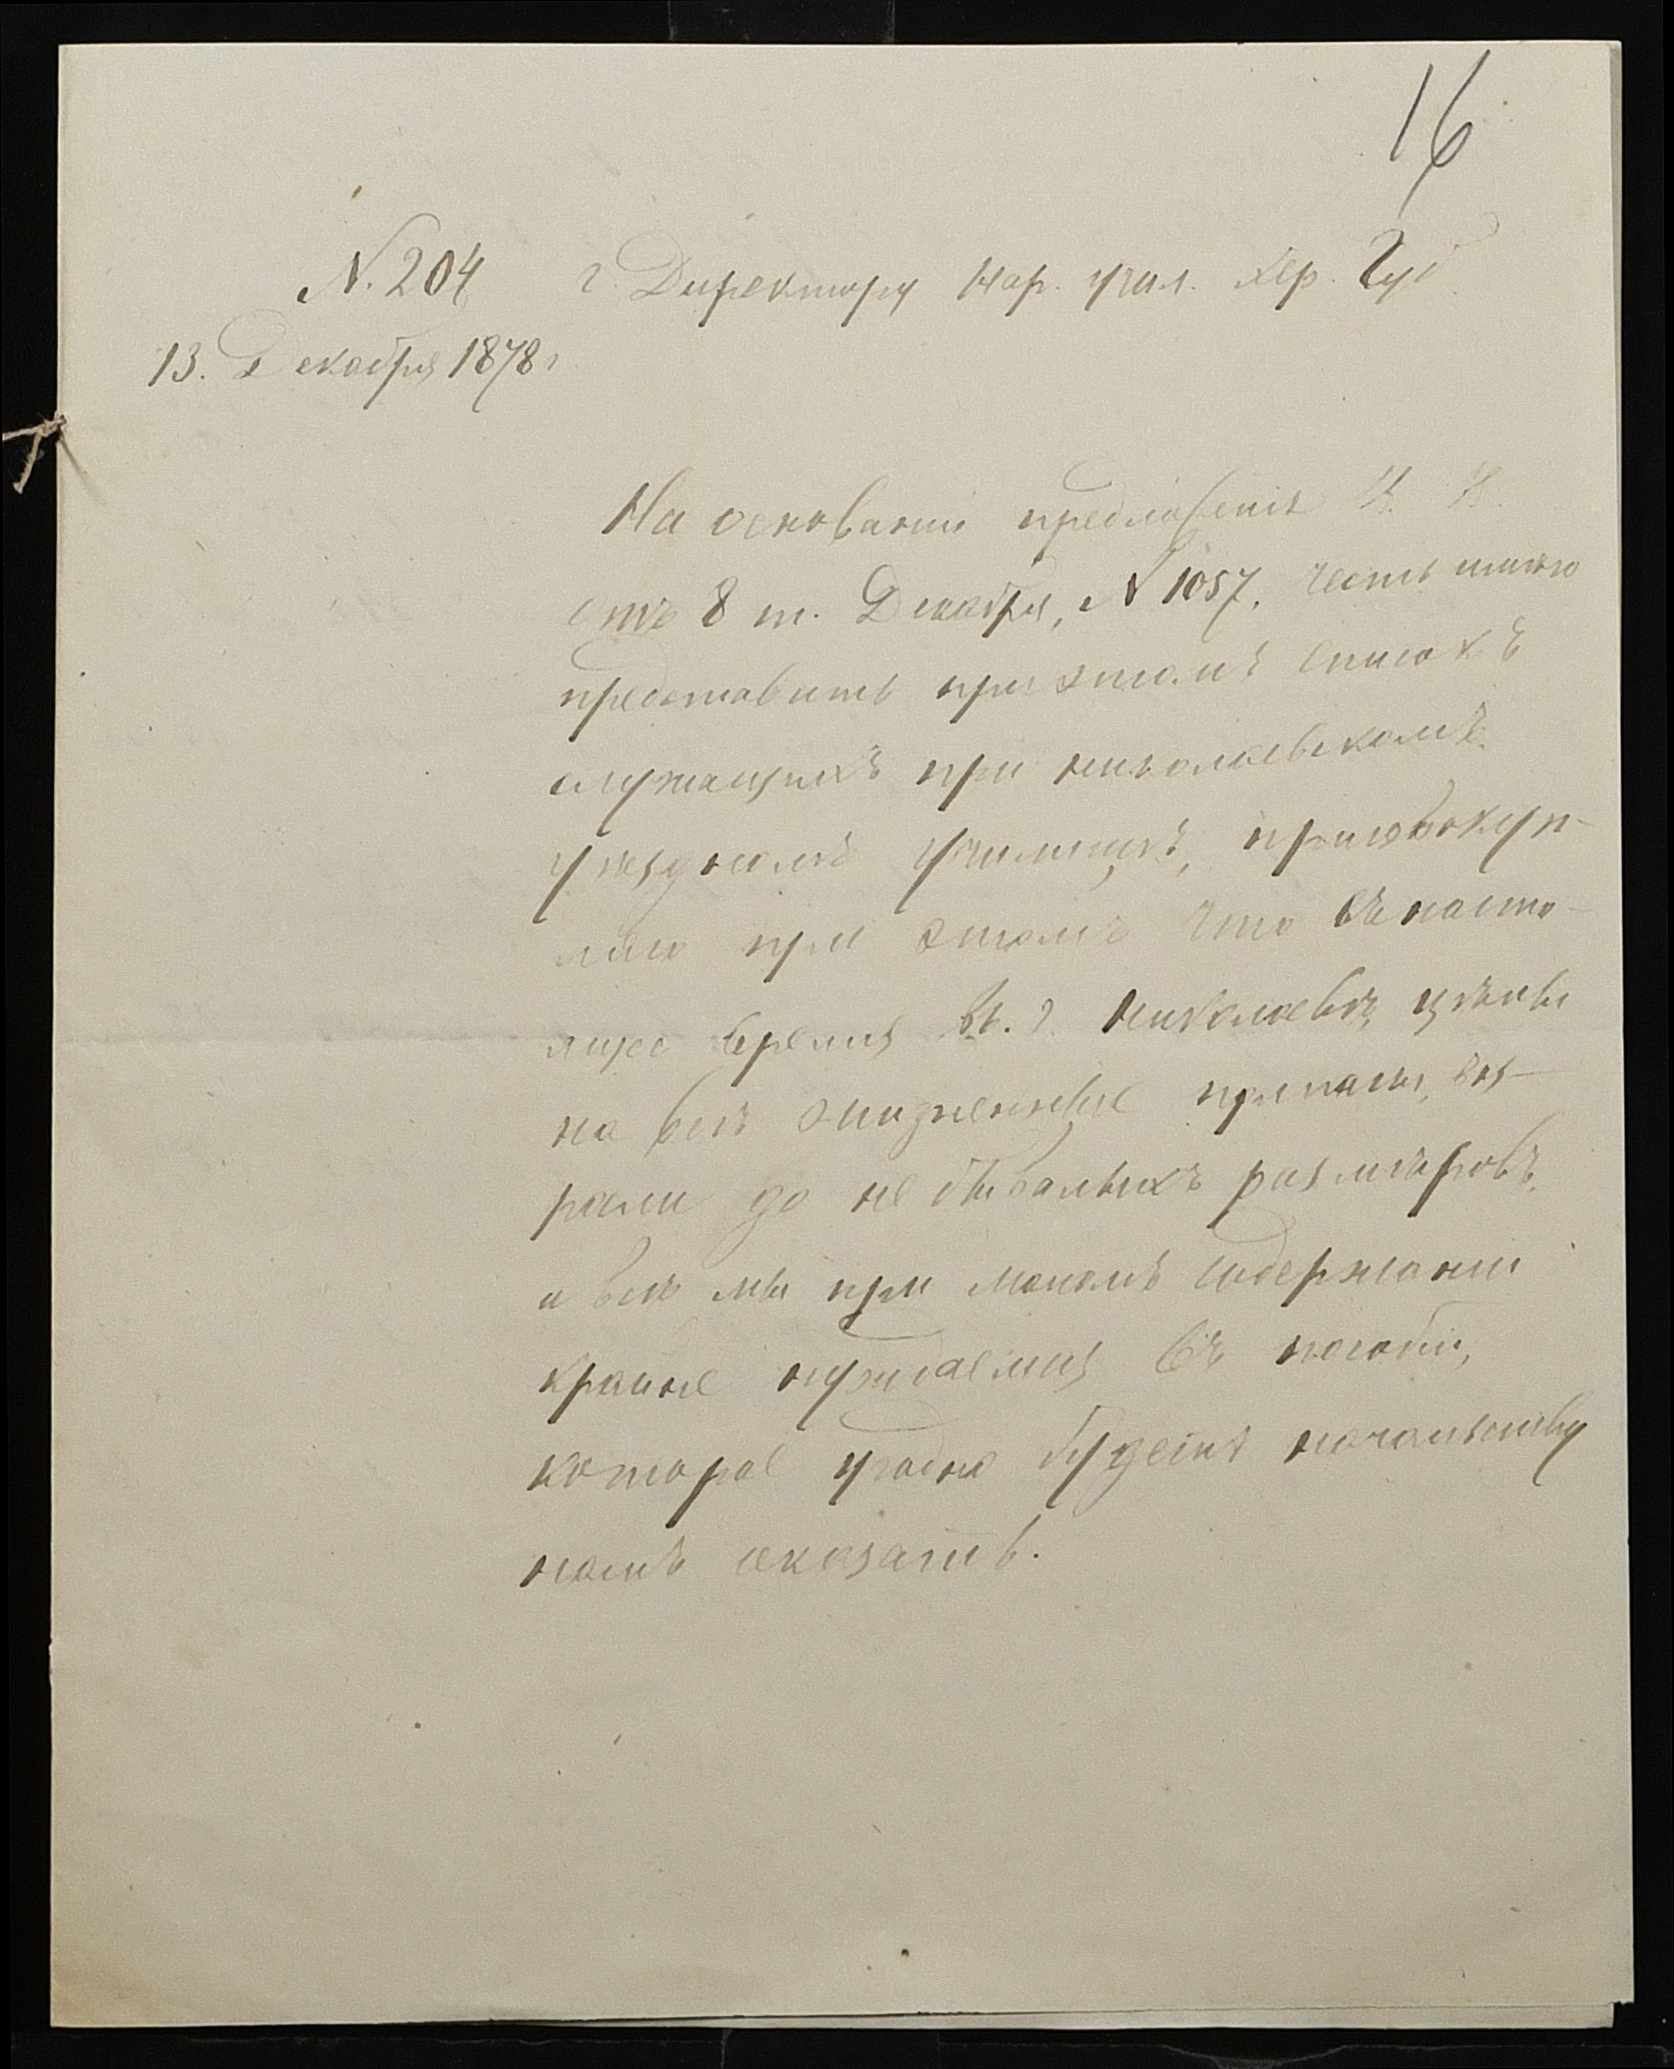 16
N. 204 г. Директору Нар. учил. Хер. Губ.
13. Декабря 1878 г
На основаніи предложенія
отъ 8 т. Декабря, N 1057, честь имѣю
представить при этомъ списокъ
служащихъ при николаевскомъ
уѣздномъ училищѣ, присовокуп-
ляю при этомъ что въ насто-
ящее время въ г. Николаевѣ, цѣны
на всѣ жизненные припасы, воз-
расли до не бывалыхъ размѣровъ
и всѣ мы при маломъ содержаніи
крайне нуждаемся въ пособіи,
которое угодно будетъ начальству
намъ оказать.